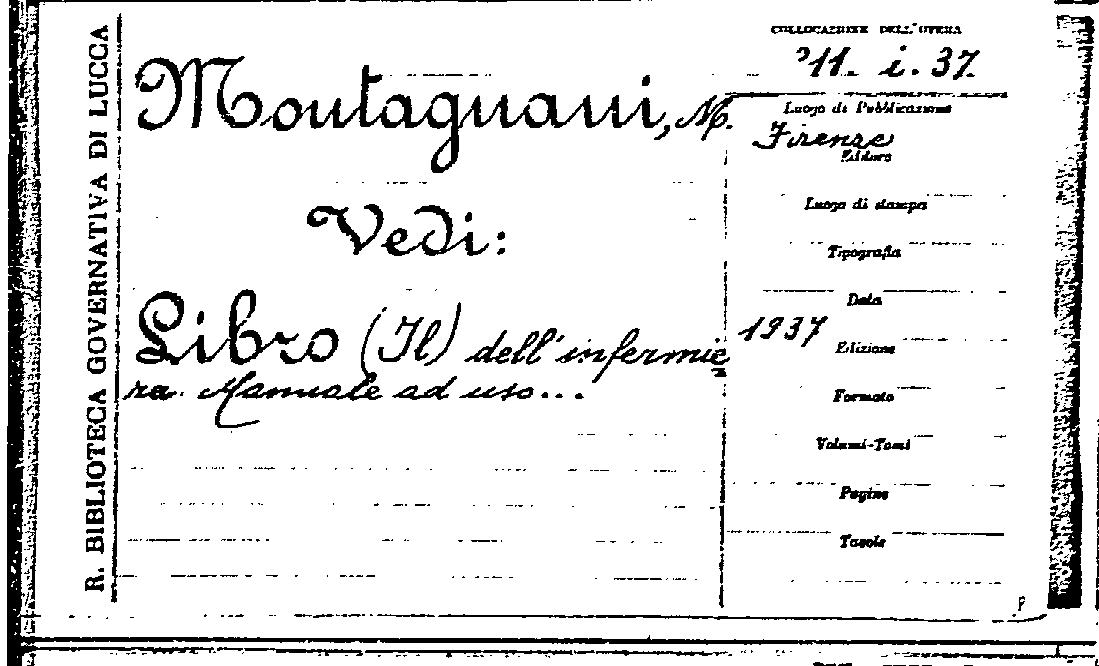 R. BIBLIOTECA GOVERNATIVA DI LUCCA
COLLOCAZIONE DELL'OPERA
11. i. 37.
Montagnani, M.
Vedi:
Libro (Il) dell'infermie
ra. Manuale ad uso...
Luogo di Pubblicazione
Firenze
Editore
Luogo di stampa
Tipografia
Data
1937
Edizione
Formato
Volumi-Tomi
Pagine
Tavole